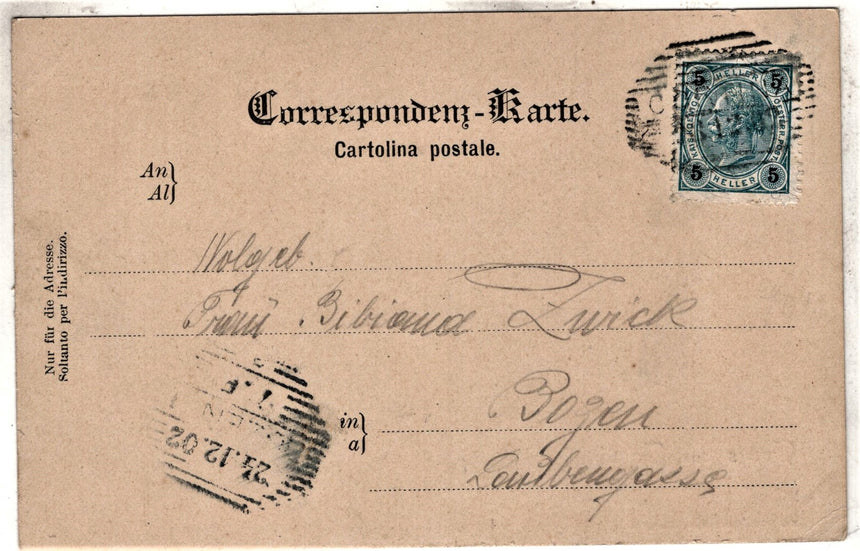 Correspondenz-Karte.
Cartolina postale.
5 HELLER 5
KAIS. KÖNIGL. ÖSTERR. POST.
5 HELLER 5
An
Al
Nur für die Adresse.
Soltanto per l'indirizzo.
Wolgeb.
Frau Bibiana Zwick
in
a
Bozen
Laubengasse
24.12.02